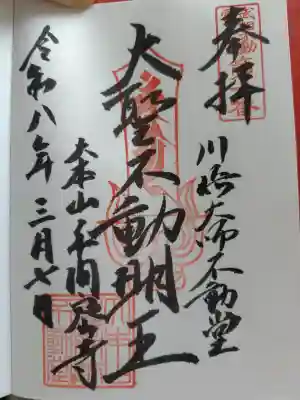 奉拝
川崎大師不動堂
大聖不動明王
大本山平間寺
令和八年三月七日